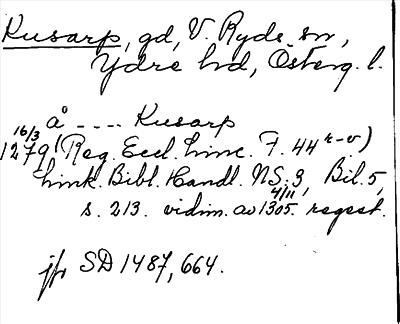 Kusarp, gd, V. Ryds sn,
Ydre hd, Österg. l.
å ---- Kusarp
16/3 1279 (Reg. Eccl. Linc. F. 44 r-v)
Link. Bibl. Handl. NS. 3, Bil. 5,
s. 213. vidim. av 4/11 1305. regest.
jfr SD 1487, 664.